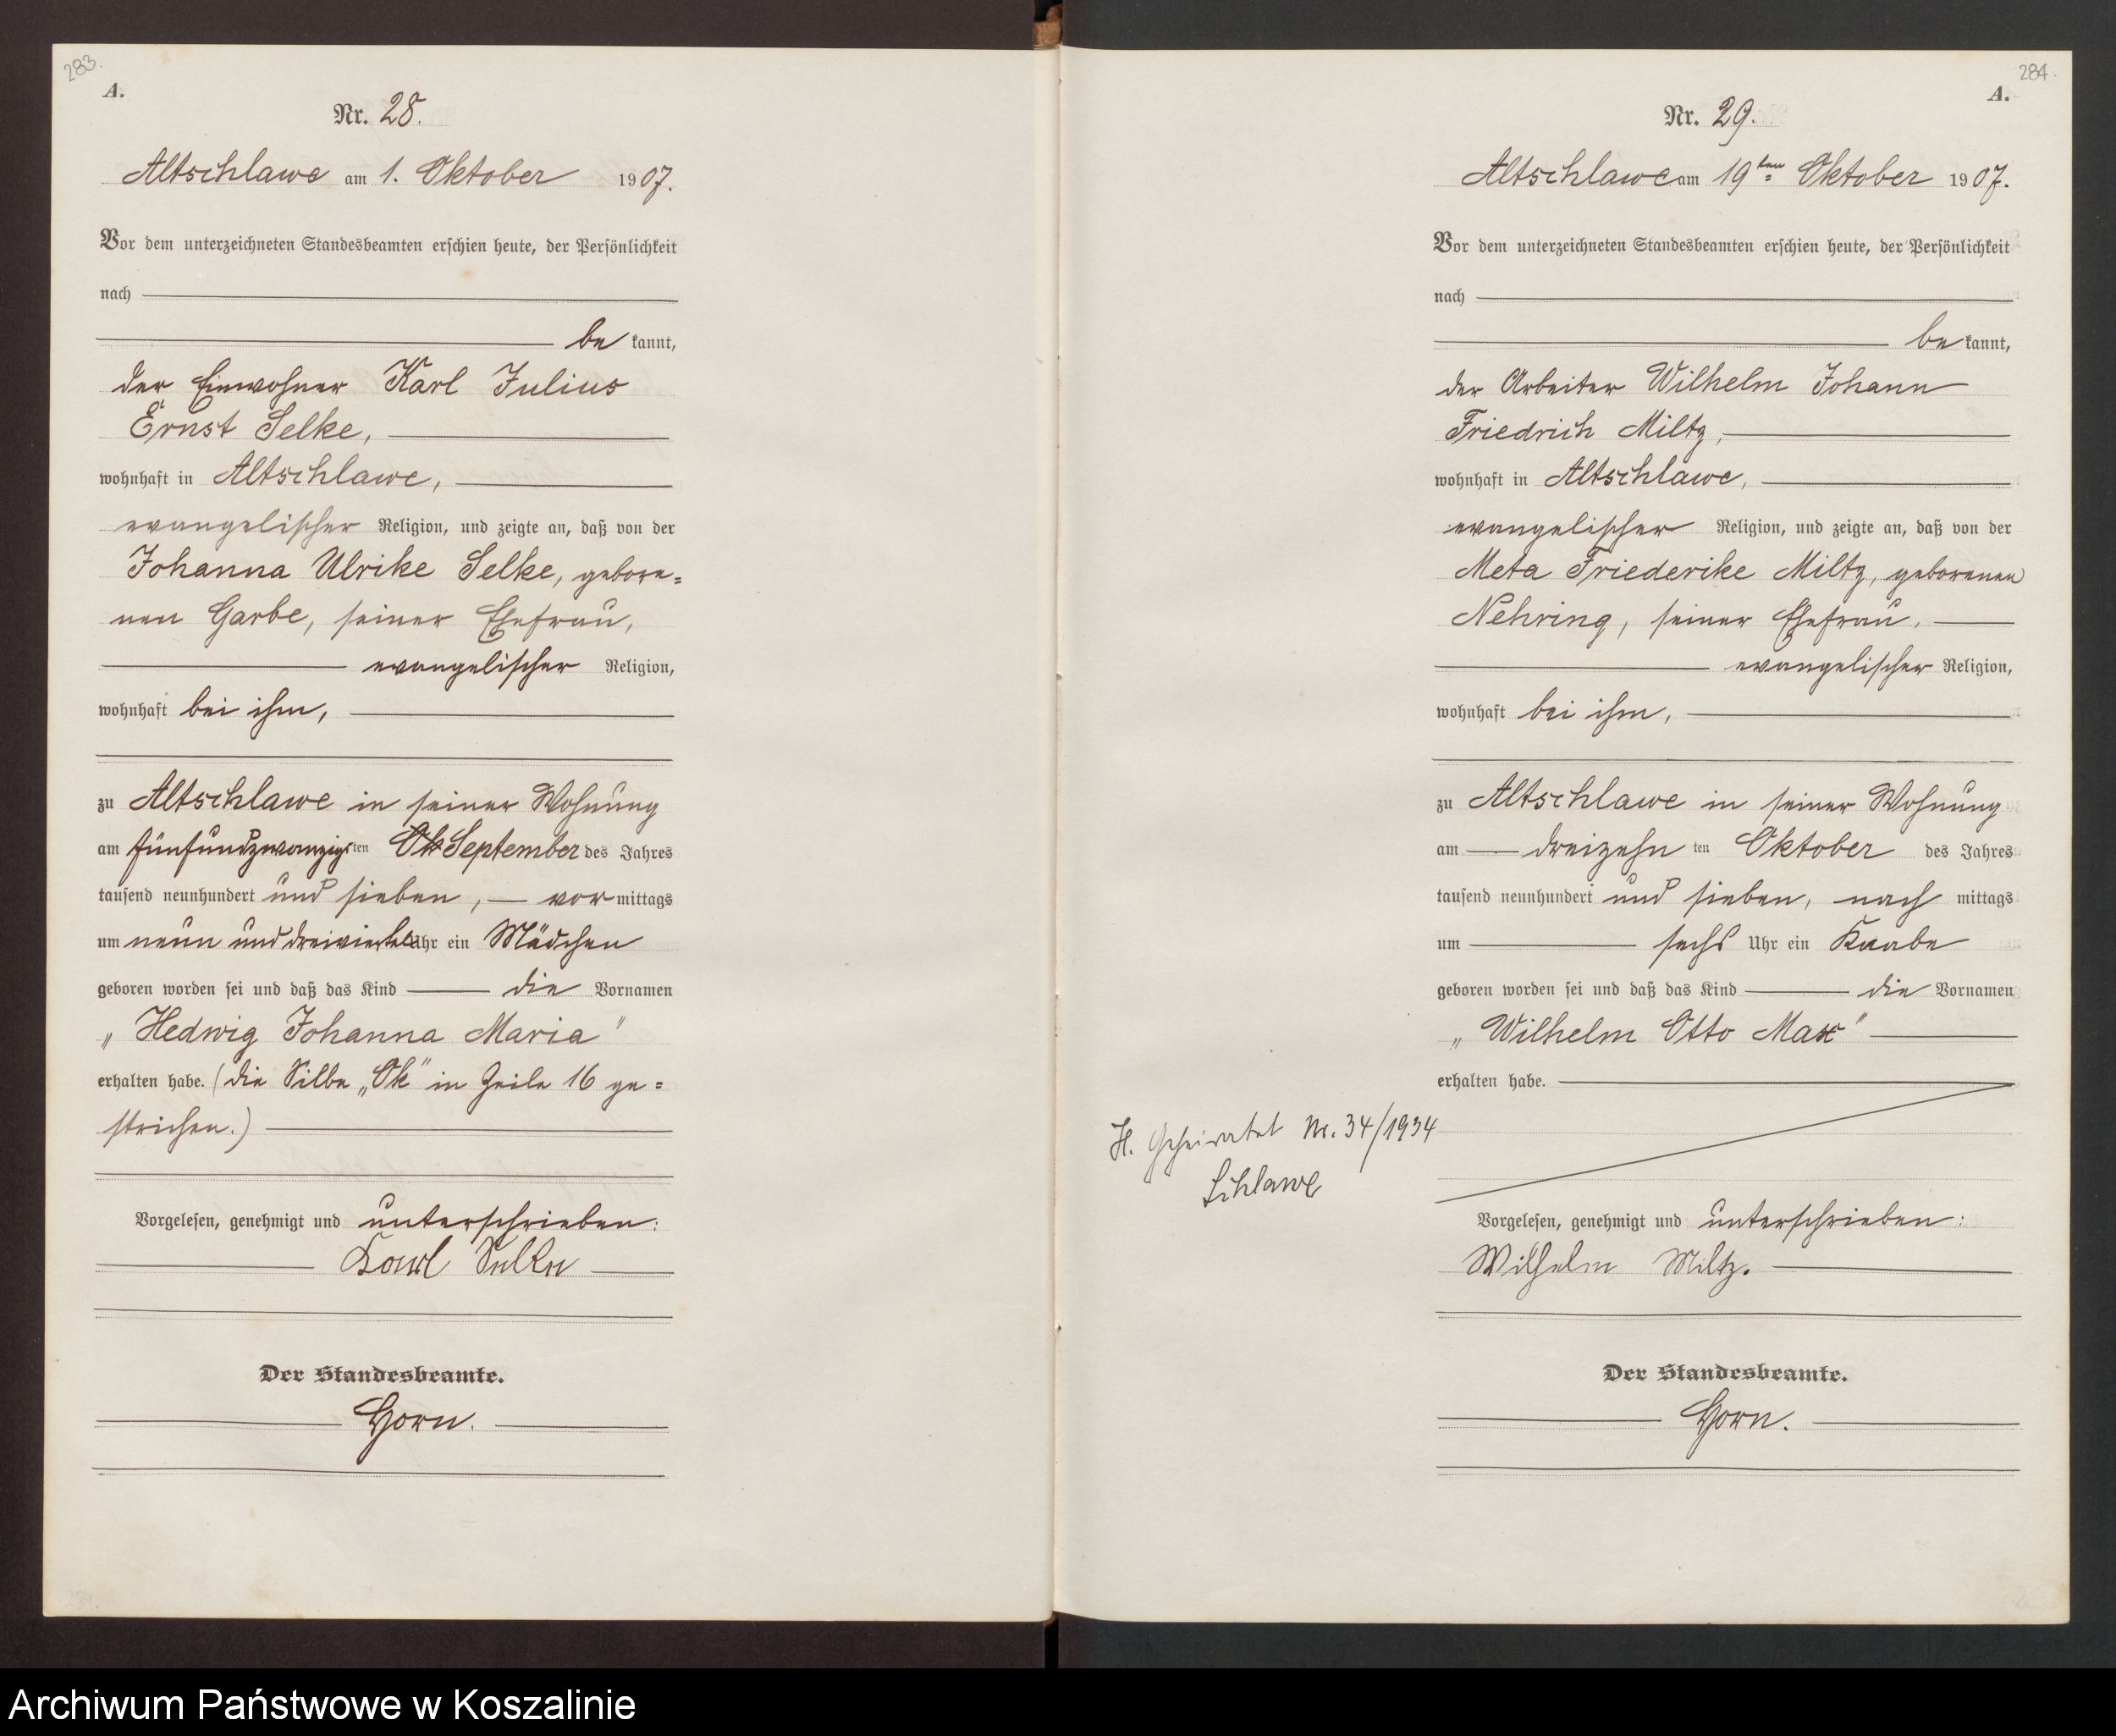 283.
A.
Nr. 28.
Altschlawe am 1. Oktober 1907.
Vor dem unterzeichneten Standesbeamten erschien heute, der Persönlichkeit
nach
be kannt,
der Einwohner Karl Julius
Ernst Selke,
wohnhaft in Altschlawe,
evangelischer Religion, und zeigte an, daß von der
Johanna Ulrike Selke, gebore=
nen Garbe, seiner Ehefrau,
evangelischer Religion,
wohnhaft bei ihm,
zu Altschlawe in seiner Wohnung
am fünfundzwanzigsten Ok September des Jahres
tausend neunhundert und sieben, vor mittags
um neun und dreiviertel Uhr ein Mädchen
geboren worden sei und daß das Kind die Vornamen
„Hedwig Johanna Maria"
erhalten habe. (die Silbe „Ok" in Zeile 16 ge=
strichen.)
Vorgelesen, genehmigt und unterschrieben:
Karl Selke
Der Standesbeamte.
Horn.
284.
A.
Nr. 29.
Altschlawe am 19ten Oktober 1907.
Vor dem unterzeichneten Standesbeamten erschien heute, der Persönlichkeit
nach
be kannt,
der Arbeiter Wilhelm Johann
Friedrich Miltz,
wohnhaft in Altschlawe,
evangelischer Religion, und zeigte an, daß von der
Meta Friederike Miltz, geborenen
Nehring, seiner Ehefrau,
evangelischer Religion,
wohnhaft bei ihm,
zu Altschlawe in seiner Wohnung
am dreizehn ten Oktober des Jahres
tausend neunhundert und sieben, nach mittags
um sechs Uhr ein Knabe
geboren worden sei und daß das Kind die Vornamen
„Wilhelm Otto Max"
erhalten habe.
H. Geheiratet Nr. 34/1934
Schlawe
Vorgelesen, genehmigt und unterschrieben:
Wilhelm Miltz.
Der Standesbeamte.
Horn.
Archiwum Państwowe w Koszalinie